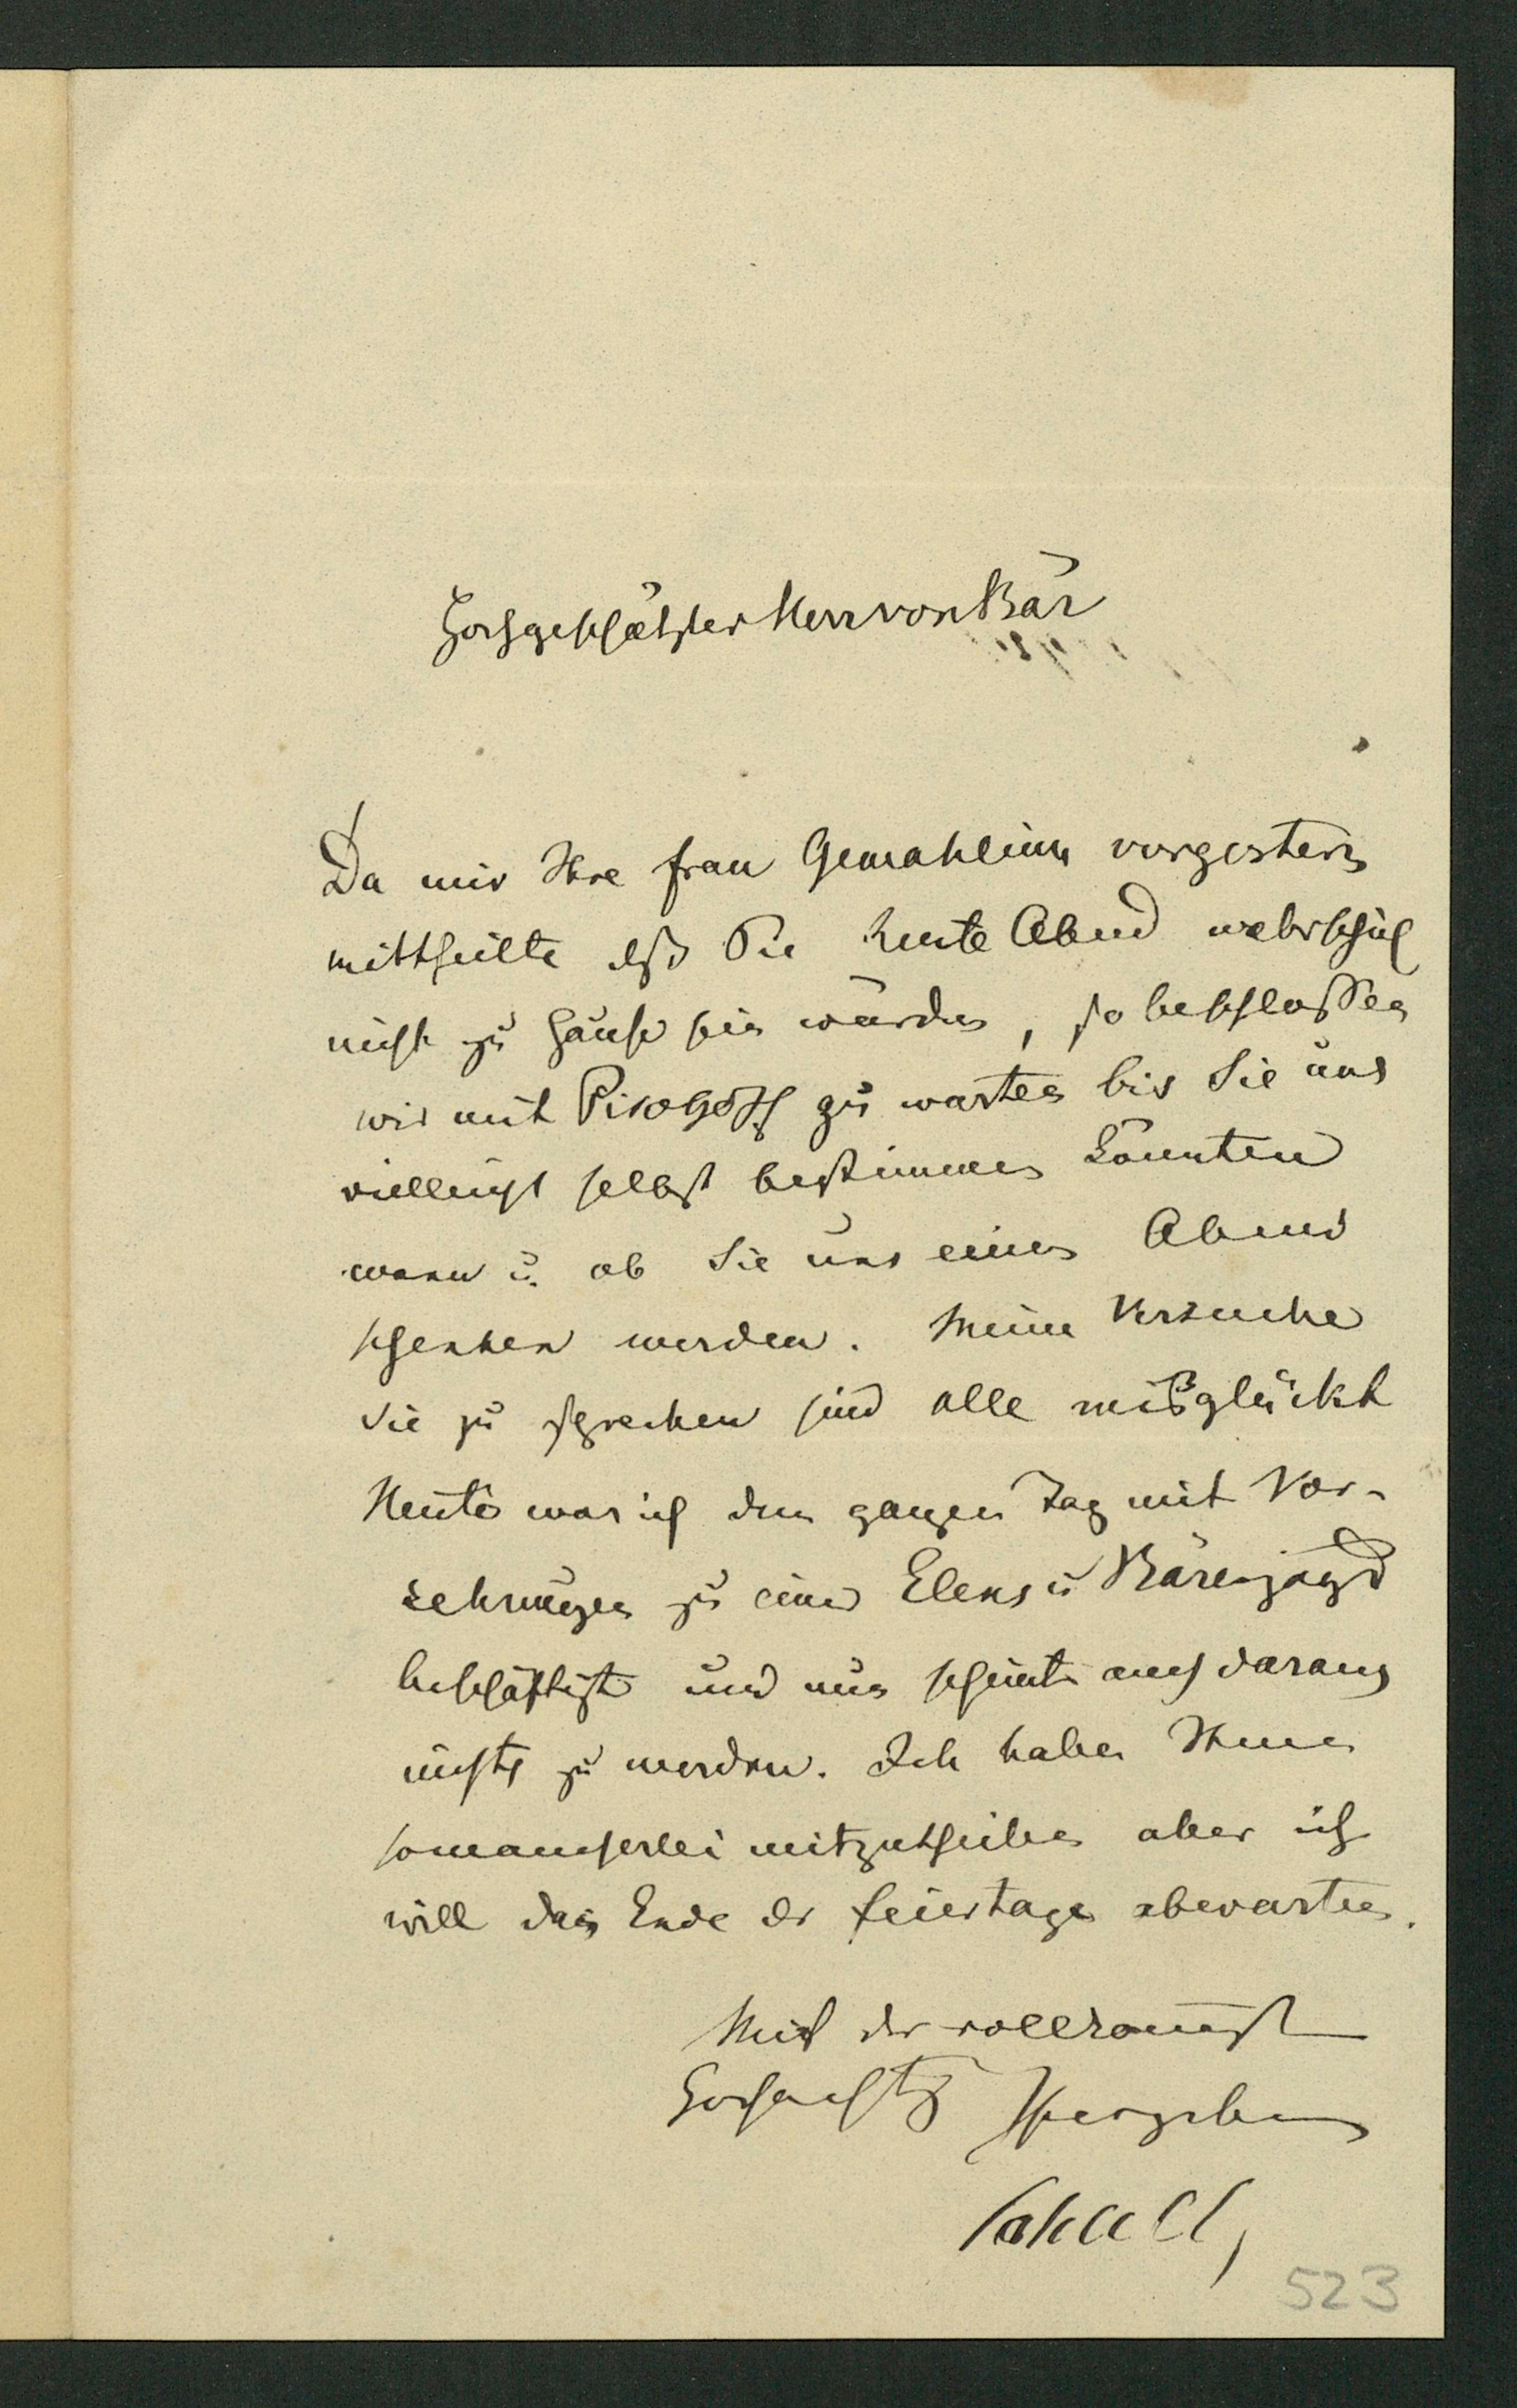 Hochgeschätzter Herr von Bär
Da mir Ihre Frau Gemahlinn vorgestern
mittheilte daß Sie heute Abend wahrschl
nicht zu Hause sein würden, so beschloßen
wir mit Pirogoff zu warten bis Sie uns
vielleicht selbst bestimmen könnten
wann u. ob Sie uns einen Abend
schenken werden. Meine Versuche
Sie zu sprechen sind alle mißglückt
Heute war ich den ganzen Tag mit Vor-
kehrungen zu einer Elens u Bärenjagd
beschäftigt und nun scheint auch daraus
nichts zu werden. Ich habe Ihnen
so mancherlei mitzutheilen aber ich
will das Ende der Feiertage abwarten.
Mit der vollkommenst
Hochachtg Ihr ergebener
523